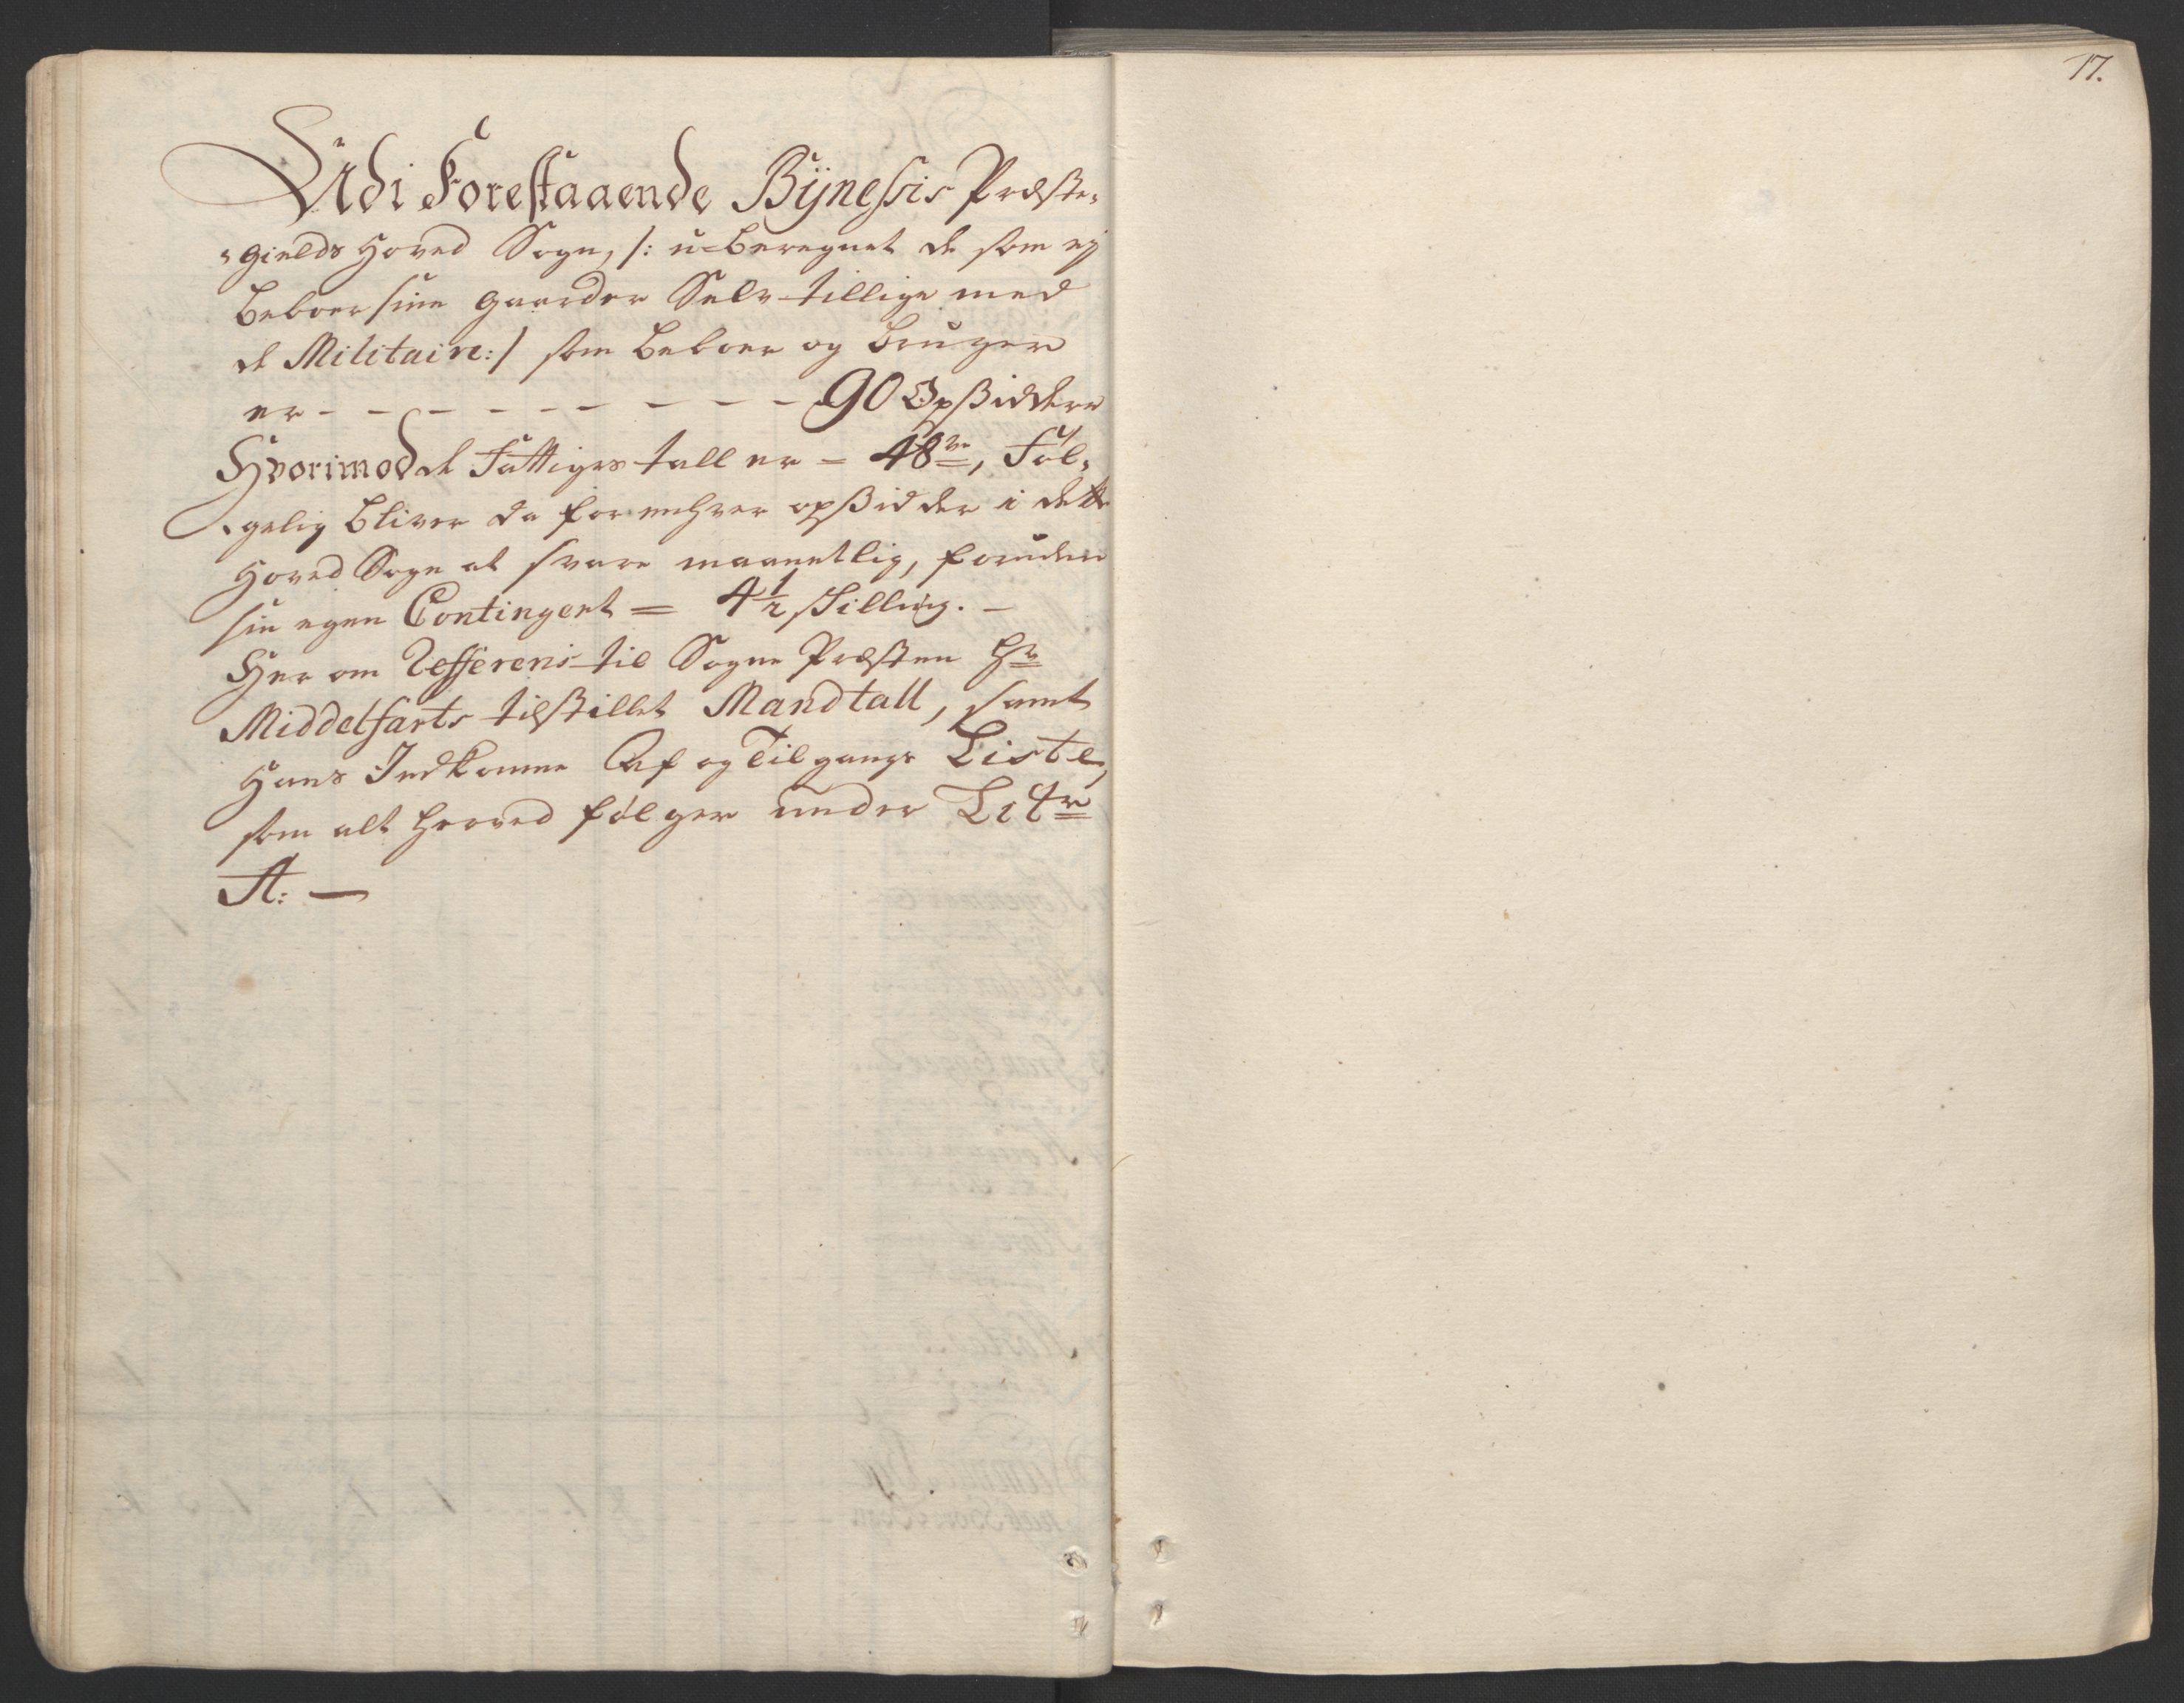 17.
Udi Forestaaende Bÿnessis Præste-
-gields Hoved Sogn, /: u-beregnet de som ej
beboer sine gaarder Selv tillige med
de Militaire:/ som beboer og bruger
er - - - - - - - - - 90 Opsiddere
Hvorimod de Fattiges tall er = 48ve, Føl-
-gelig bliver da for enhver opsidder i dette
Hoved Sogn at svare maanetlig, foruden
sin egen Contingent = 4 1/2 skilling. -
Her om Refferens til Sogne Præsten Hr
Middelfarts tilstillet Mandtall, samt
Hans Indkomne Af og Tilgangs Liste,
som alt herved følger under Litr
A: —